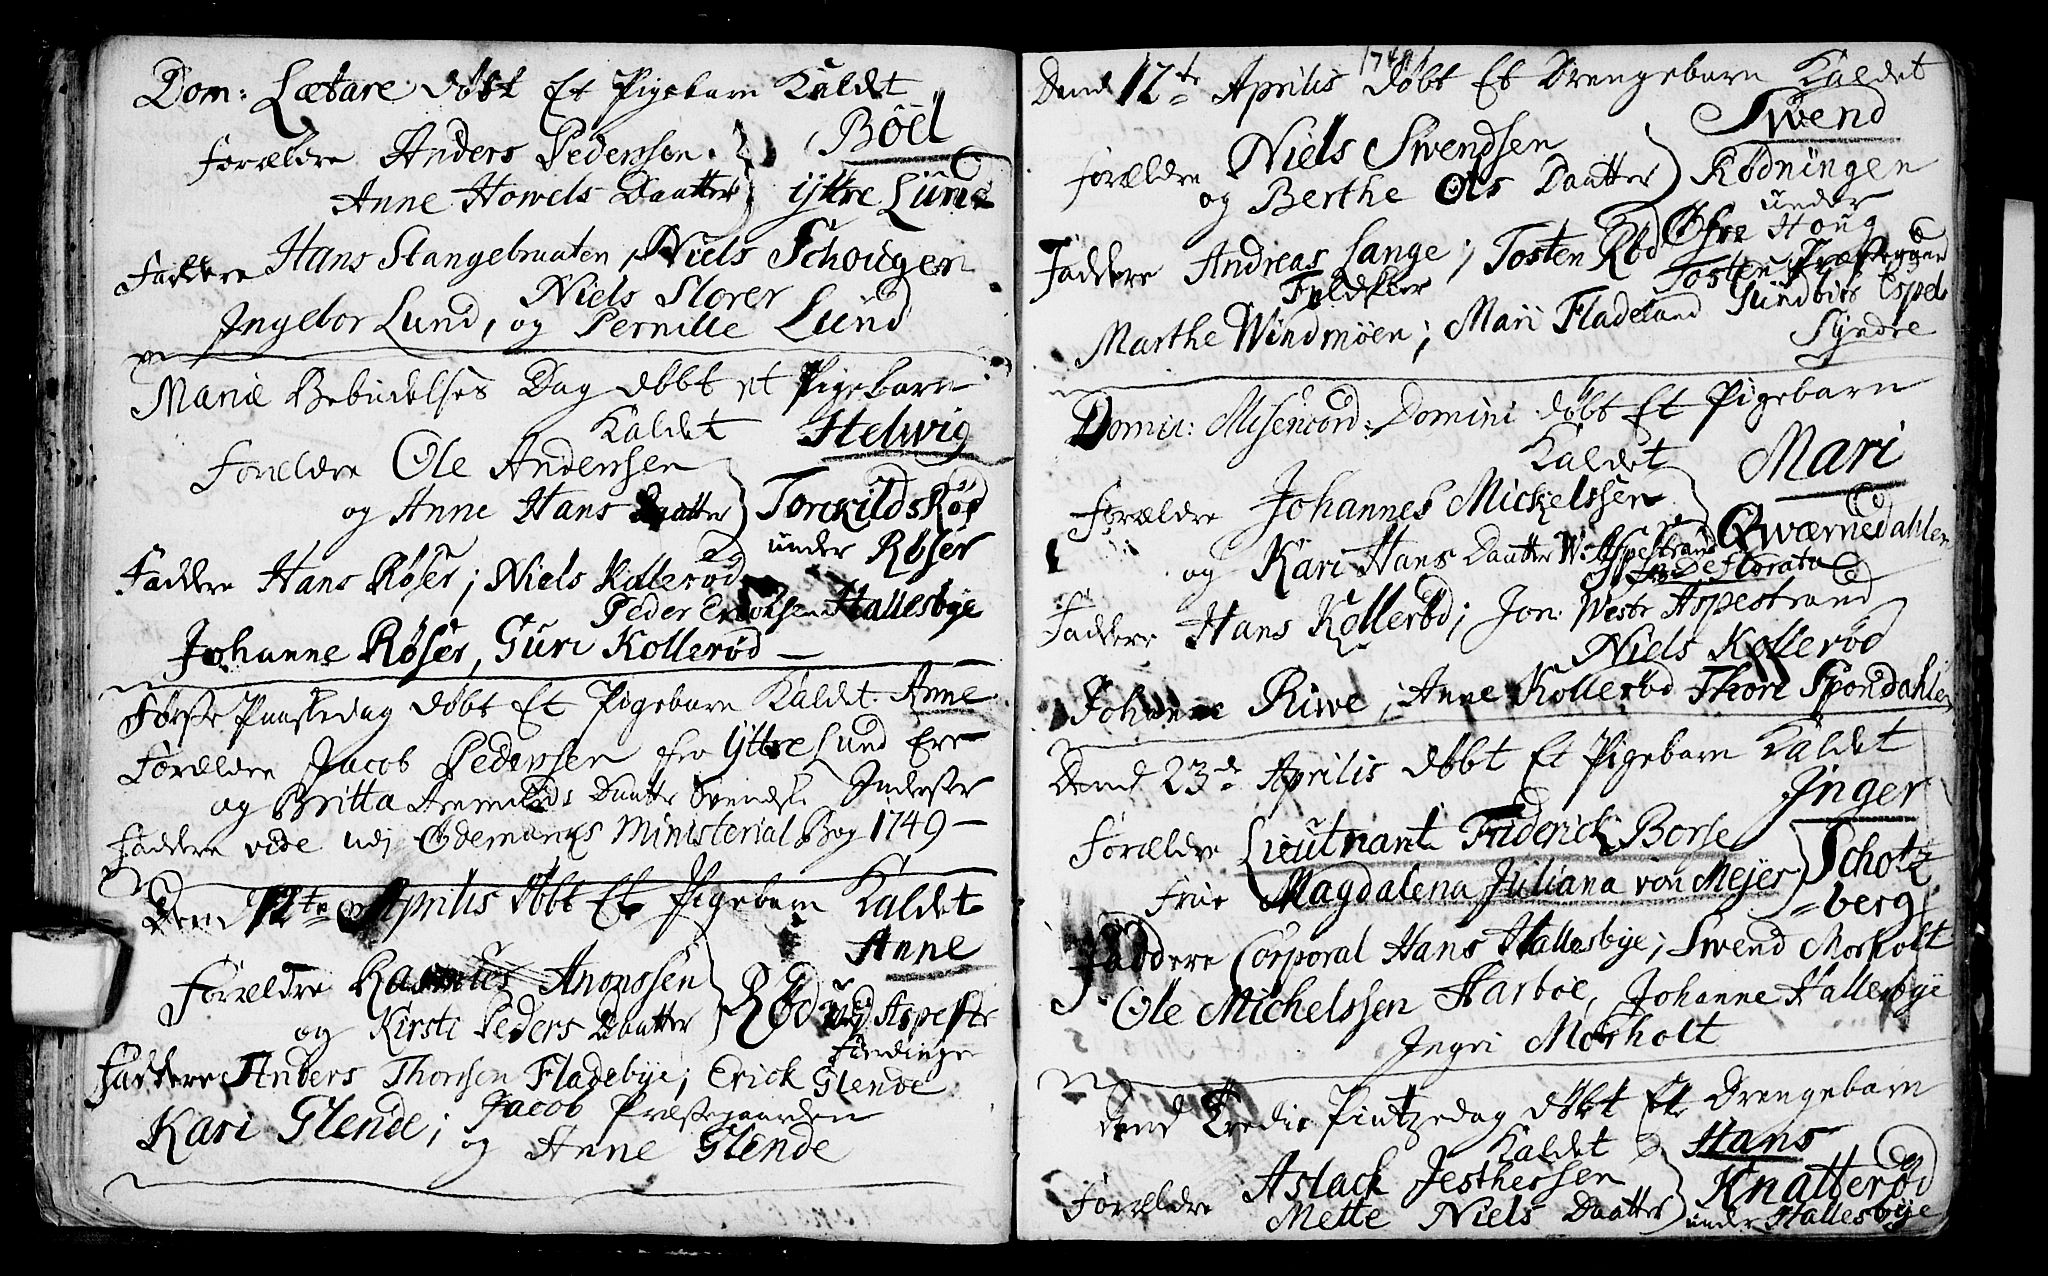 Dom: Lætare døbt Et Pigebarn Kaldet
Böel
Forældre Anders Pedersen
Anne Howels Daatter Yttre Lund
Faddere Hans Slangebraaten, Niels Schouger
Niels Storer
Ingebor Lund, og Pernille Lund
Mariæ Bebudelses Dag døbt et Pigebarn
Kaldet Helwig
Forældre Ole Andersen
og Anne Hans Daatter Torckilds Rød
under Røser
Faddere Hans Røser; Niels Kollerød
Peder Hallesbye
Johanne Røser, Guri Kollerød
Første Paaskedag døbt Et Pigebarn Kaldet Anne
Forældre Jacob Pedersen fra Yttre Lund
og Britta Daatter Svendske Inderster
Faddere vide udj Ødemarks Ministerial Bog 1749
Dend 12te Aprilis døbt Et Pigebarn Kaldet
Anne
Forældre Rasmus Anonssen
og Kirsti Peders Daatter Rød
Faddere Anders Thorssen Fladebye; Erick Glende
Kari Glende; Jacob Præstegaarden
og Anne Glende
1749
Dend 12te Aprilis døbt Et Drengebarn Kaldet
Swend
Forældre Niels Swendsen
og Berthe Ols Daatter Rødningen
under
Øfre Houg
Faddere Andreas Lange; Tosten Rød Tosten Præstegaard
Feldskier
Marthe Windmøen; Mari Fladeland Gundbiør Espel
Syndre
Domin: Misericord: Domini døbt Et Pigebarn
Kaldet Mari
Forældre Johannes Mickelssen
og Kari Hans Daatter W: Aspestrand Qwærnedahlen
Faddere Hans Kollerød; Jon Westr Aspestrand
Niels Kollerød
Johanne Riwe; Anne Kollerød Thore Spondahlen
Dend 23de Aprilis døbt Et Pigebarn Kaldet
Inger
Forældre Lieutnant Friderick Borse
Frue Magdalena Juliana von Mejer Schotz
=berg
Faddere Corporal Hans Hallesbye; Swend Morholt
Ole Michelssen Harboe, Johanne Hallesbye
Ingri Morholt
Dend Tredie Pintzedag døbt Et Drengebarn
Kaldet Hans
Forældre Aslack Jesthersen Knatterød
Mette Niels Daatter under Hallesbye